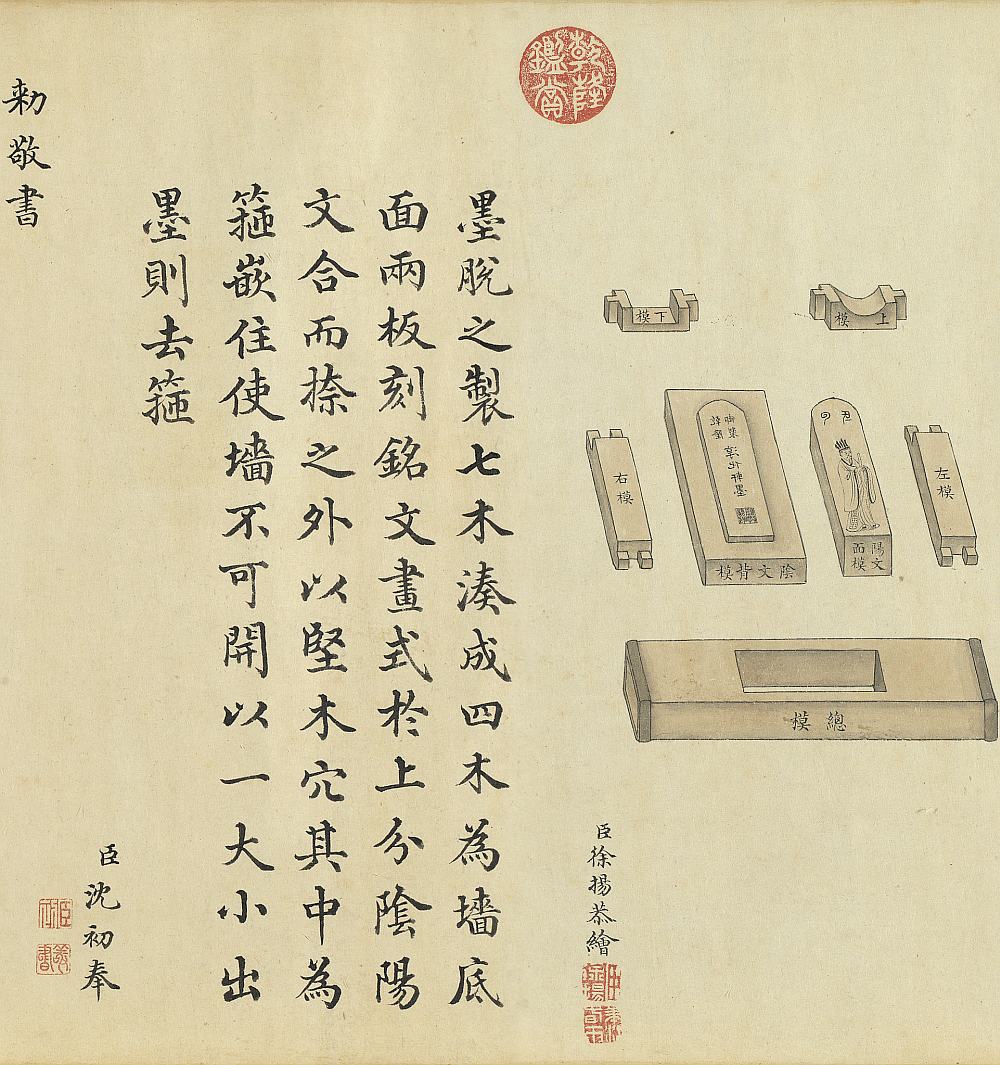 乾隆鑑賞
上模
下模
左模
陽文
面模
御製
淳化軒墨
乾隆
陰文背模
右模
總模
臣徐揚恭繪
墨脫之製七木湊成四木為墻底
面兩板刻銘文畫式於上分陰陽
文合而捺之外以堅木穴其中為
箍嵌住使墻不可開以一大小出
墨則去箍
臣沈初奉
勅敬書